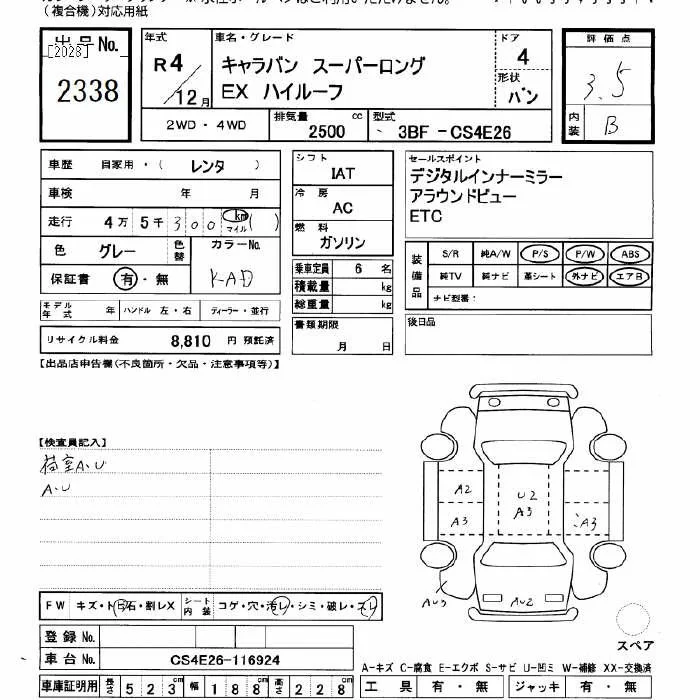 (複合機)対応用紙
出品No.
[2028]
2338
年式
R4/12月
車名・グレード
キャラバン スーパーロング
EX ハイルーフ
ドア
4
形状
バン
評価点
3.5
内装
B
2WD・4WD
排気量
2500 cc
型式
3BF-CS4E26
車歴 自家用・(レンタ)
車検 年 月
走行 4万 5千 300 km マイル ( )
色 グレー 色替
カラーNo.
KAD
保証書 有・無
モデル年式 年 ハンドル 左・右 ディーラー・並行
リサイクル料金 8,810 円 預託済
シフト
IAT
冷房
AC
燃料
ガソリン
乗車定員 6 名
積載量 kg
総重量 kg
書類期限
月 日
セールスポイント
デジタルインナーミラー
アラウンドビュー
ETC
装備品
S/R 純A/W P/S P/W ABS
純TV 純ナビ 革シート 外ナビ エアB
ナビ型番:
後日品
【出品店申告欄(不良箇所・欠品・注意事項等)】
【検査員記入】
荷室A.U
A.U
A2
A3
U2
A3
A3
AU3
AU2
スペア
FW キズ・ト日石・割レX
シート内装 コゲ・穴・汚レ・シミ・破レ・スレ
登録No.
車台No. CS4E26-116924
車庫証明用 長さ 523 幅 188 高さ 228
A-キズ C-腐食 E-エクボ S-サビ U-凹ミ W-補修 XX-交換済
工具 有・無 ジャッキ 有・無